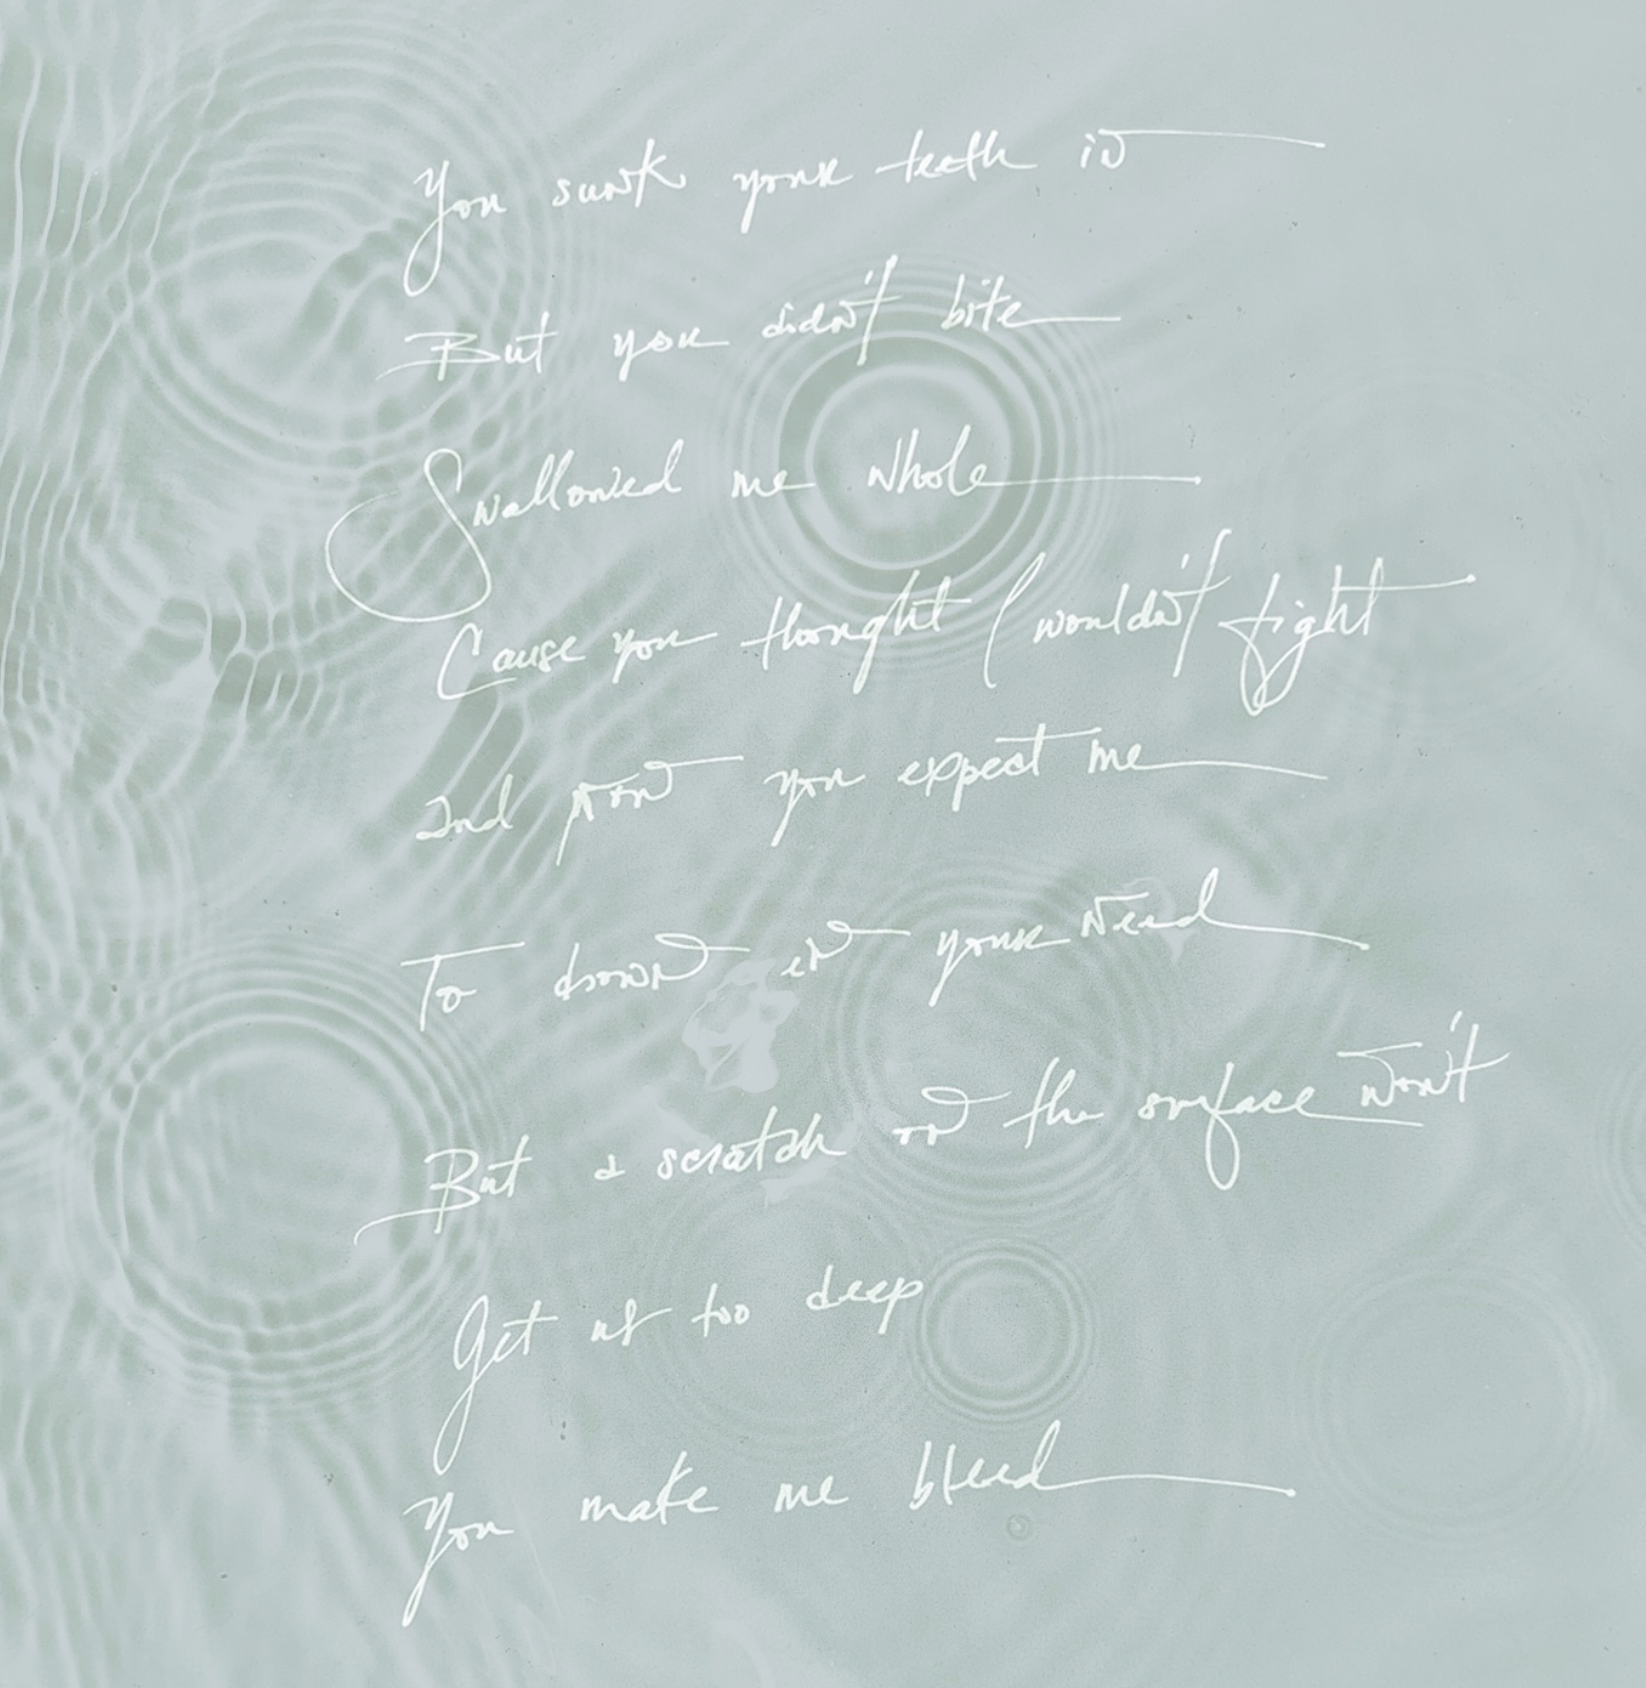 You sunk your teeth in
But you didn't bite
Swallowed me whole
Cause you thought I wouldn't fight
And now you expect me
To drown in your need
But a scratch on the surface won't
Get us too deep
You make me bleed